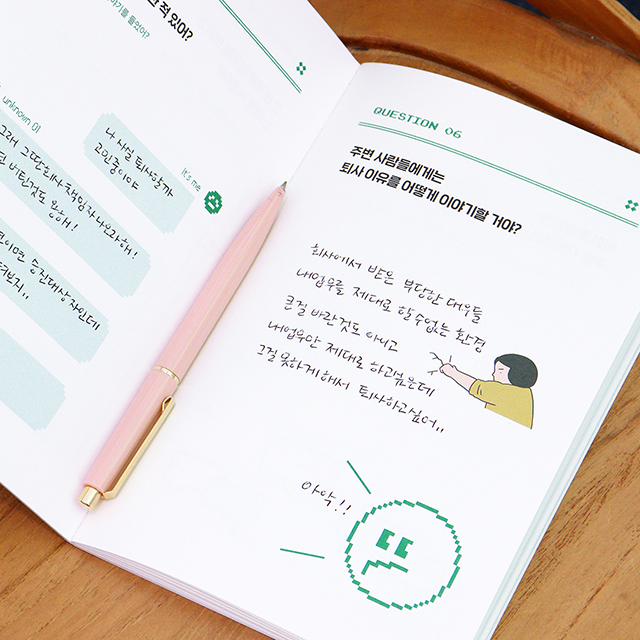 한 적 있어?
야기를 들었어?
unknown 01
나 사실 퇴사할까
고민중이야
It's me
그래 그만둬!
QUESTION 06
주변 사람들에게는
퇴사 이유를 어떻게 이야기할 거야?
회사에서 받은 부당한 대우들
내업무를 제대로 할수없는 환경
큰걸 바란것도 아니고
내업무만 제대로 하고싶은데
그걸 못하게 해서 퇴사하고싶어..
아악!!